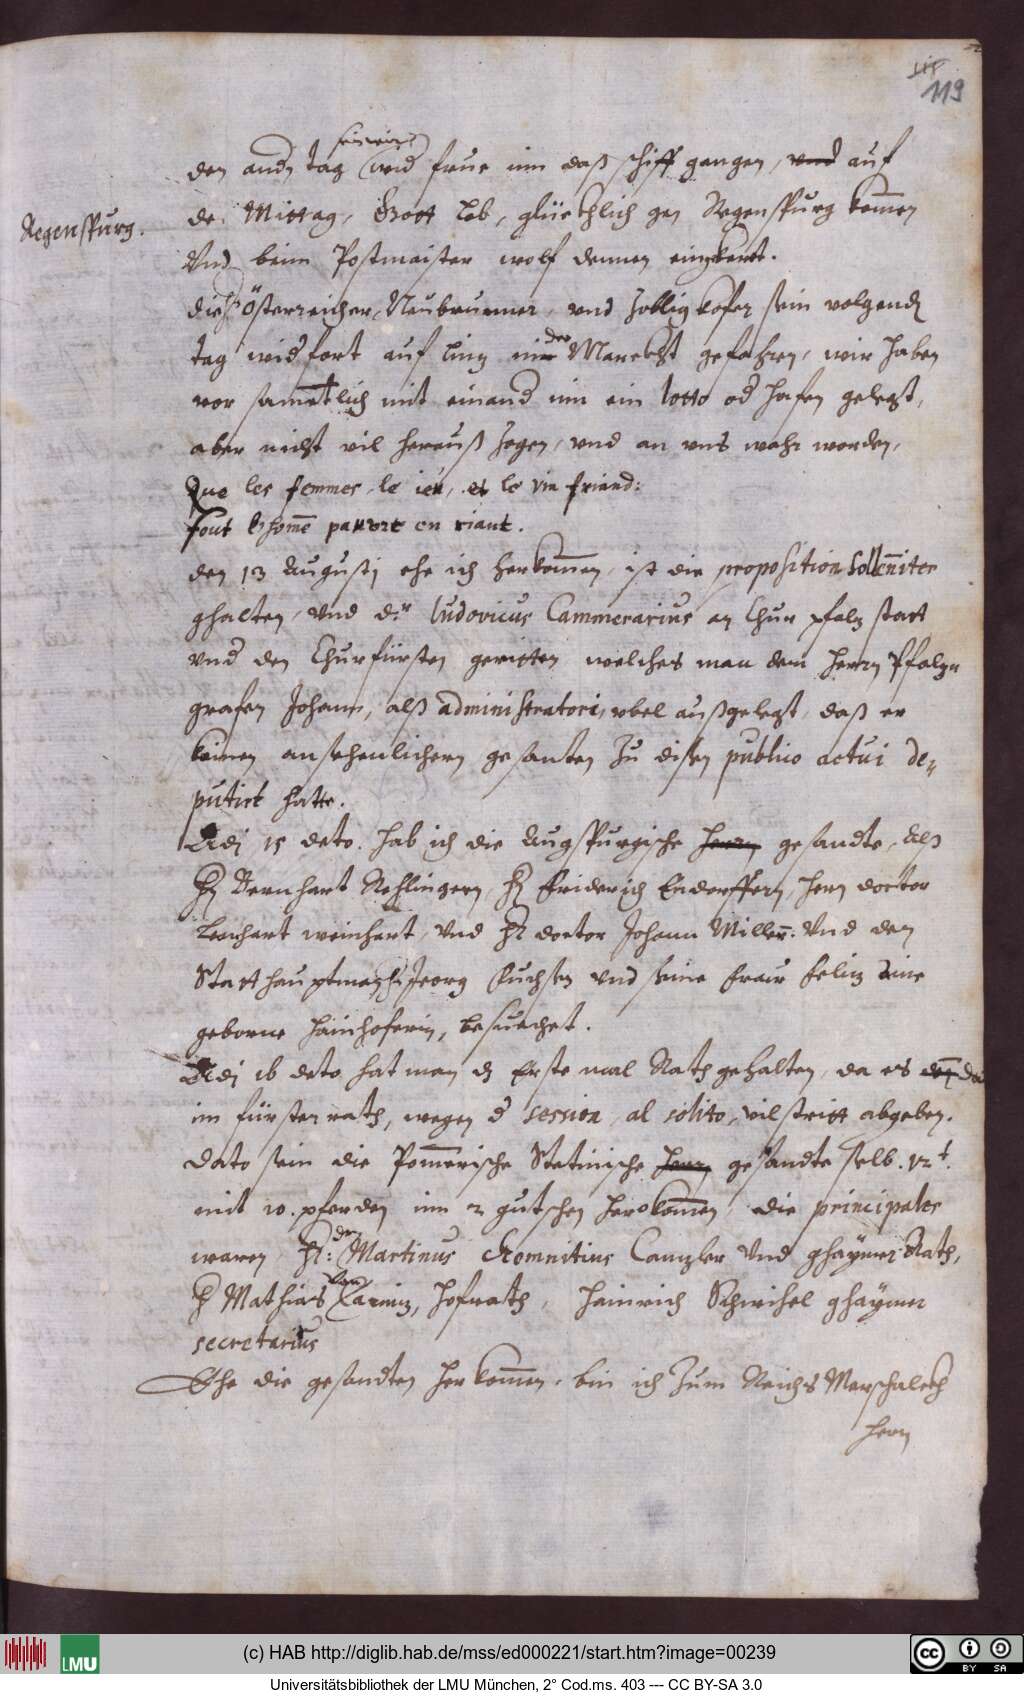 119
sein wir
den andn tag wid frue inn daß schiff gangen, vnd auf
Regenspurg.
de Mittag, Gott lob, glückhlich gen Regenspurg kom̄en
Vnd beim Postmaister wolf dennen eingekert.
die Österreicher, Neubrunner, vnd Zollikofer sein volgend
tag wid fort auf linz inn den Marckht gefahren, wir haben
vor samentlich mit einand inn ein lotto od hafen gelegt,
aber nicht vil herauß zogen, vnd an vns wahr worden,
Que les femmes, le ieu, et le vin friand:
font l'hom̄e pauvre en riant.
den 13 Augusti ehe ich herkom̄en, ist die proposition Solleniter
ghalten, vnd dr. Ludovicus Cammerarius an Chur pfalz statt
vnd den Churfürsten geritten welches man dem herrn Pfalz
grafen Johann, alß administratori, vbel außgelegt, daß er
keinen ansehenlichern gesanten zu disen publico actui de-
putirt hatte.
Adj 15 deto. hab ich die Augspurgische herrn gesandte, Alß
H Bernhart Rehlingern, H Friderich Endorffern, hern doctor
Leonhart weinhart, Vnd H doctor Johann Miller. Vnd den
Statthauptman H Jeorg Fuchsen vnd seine fraw Feliz eine
geborne Hainhoferin, besuechet.
Adj 16 deto hat man dz Erste mal Rath gehalten, da es den da
im fürsten rath, wegen d session, al solito, vil stritt abgeben.
Dato sein die Pom̄erische Stetinische herrn gesandte selb. 12t.
mit 10. pferden inn 2 gutschen herkom̄en, die principales
waren, H: dr Martinus Chomnitius Canzler Vnd ghaÿmer Rath,
H Mathias von Carniz, hofrath, Hainrich Schwichel ghaÿmer
secretarius
Ehe die gesandten her kom̄en. bin ich zum Reichs Marschalckh
hern
LMU
(c) HAB http://diglib.hab.de/mss/ed000221/start.htm?image=00239
cc BY SA
Universitätsbibliothek der LMU München, 2° Cod.ms. 403 --- CC BY-SA 3.0